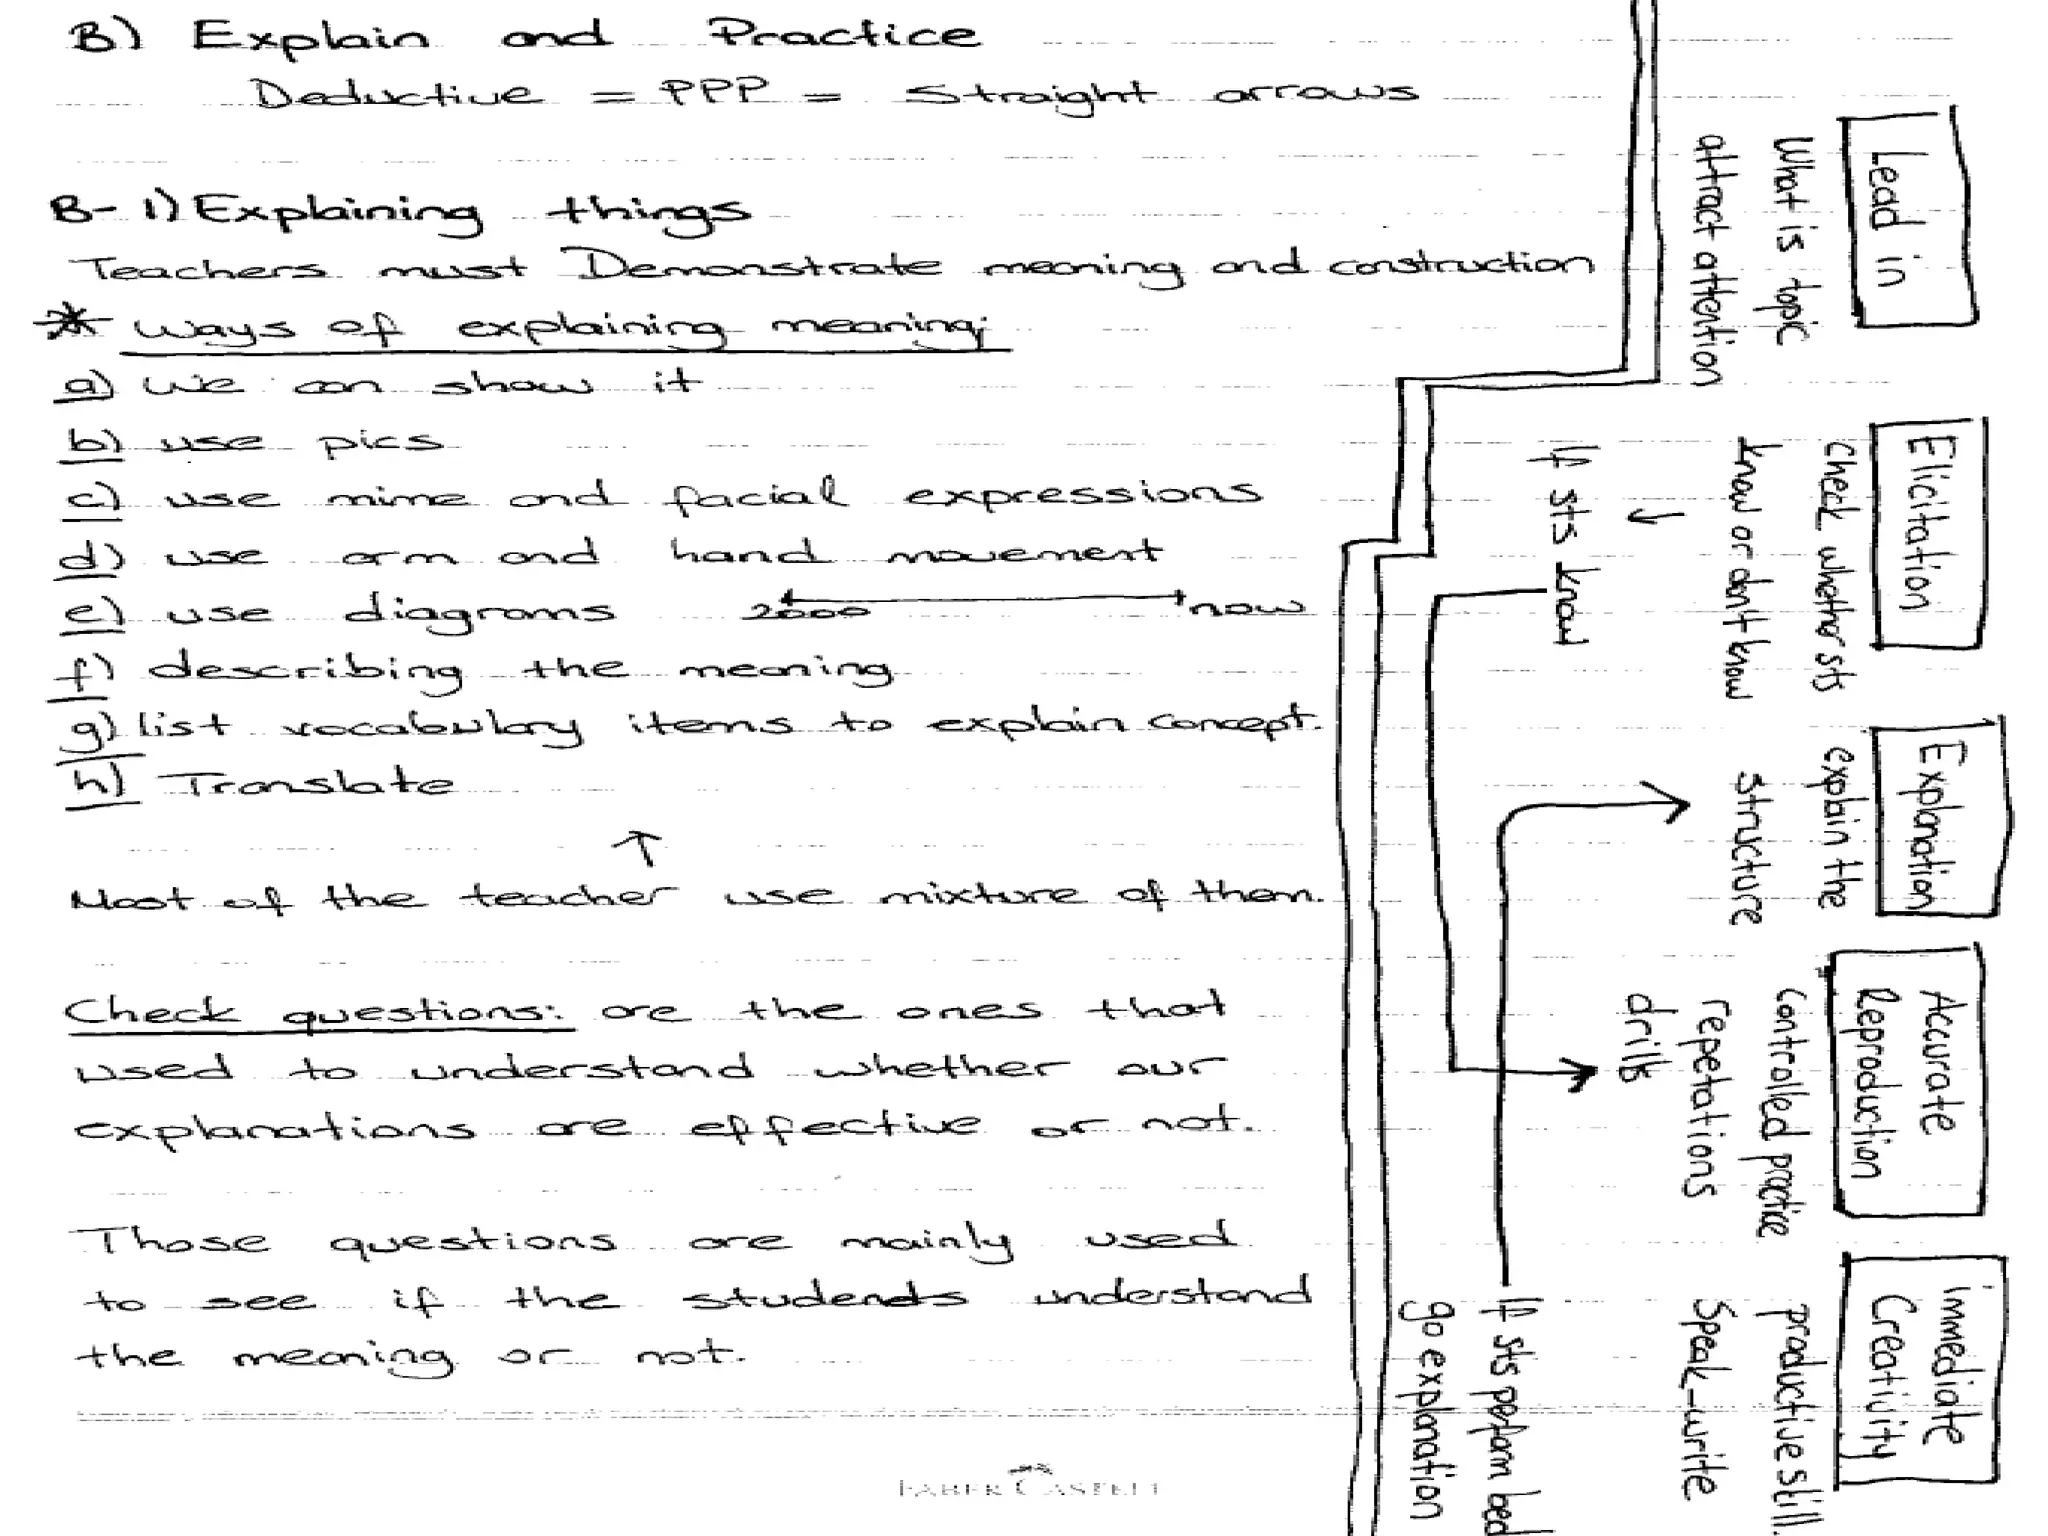 B) Explain and Practice
Deductive = PPP = Straight arrows
B- 1) Explaining things
Teachers must Demonstrate meaning and construction
* ways of explaining meaning;
a) we can show it
b) use pics
c) use mime and facial expressions
d) use arm and hand movement
e) use diagrams 2000 now
f) describing the meaning
g) list vocabulary items to explain concept.
h) Translate
↑
Most of the teacher use mixture of them.
Check questions: are the ones that
used to understand whether our
explanations are effective or not.
Those questions are mainly used
to see if the students understand
the meaning or not.
Lead in
What is topic
attract attention
Elicitation
Check whether sts
know or don't know
↓
If sts know
Explanation
explain the
structure
Accurate
Reproduction
Controlled practice
repetations
drills
Immediate
Creativity
productive skill.
Speak-write
If sts perform bad
go explanation
FABER CASTELL